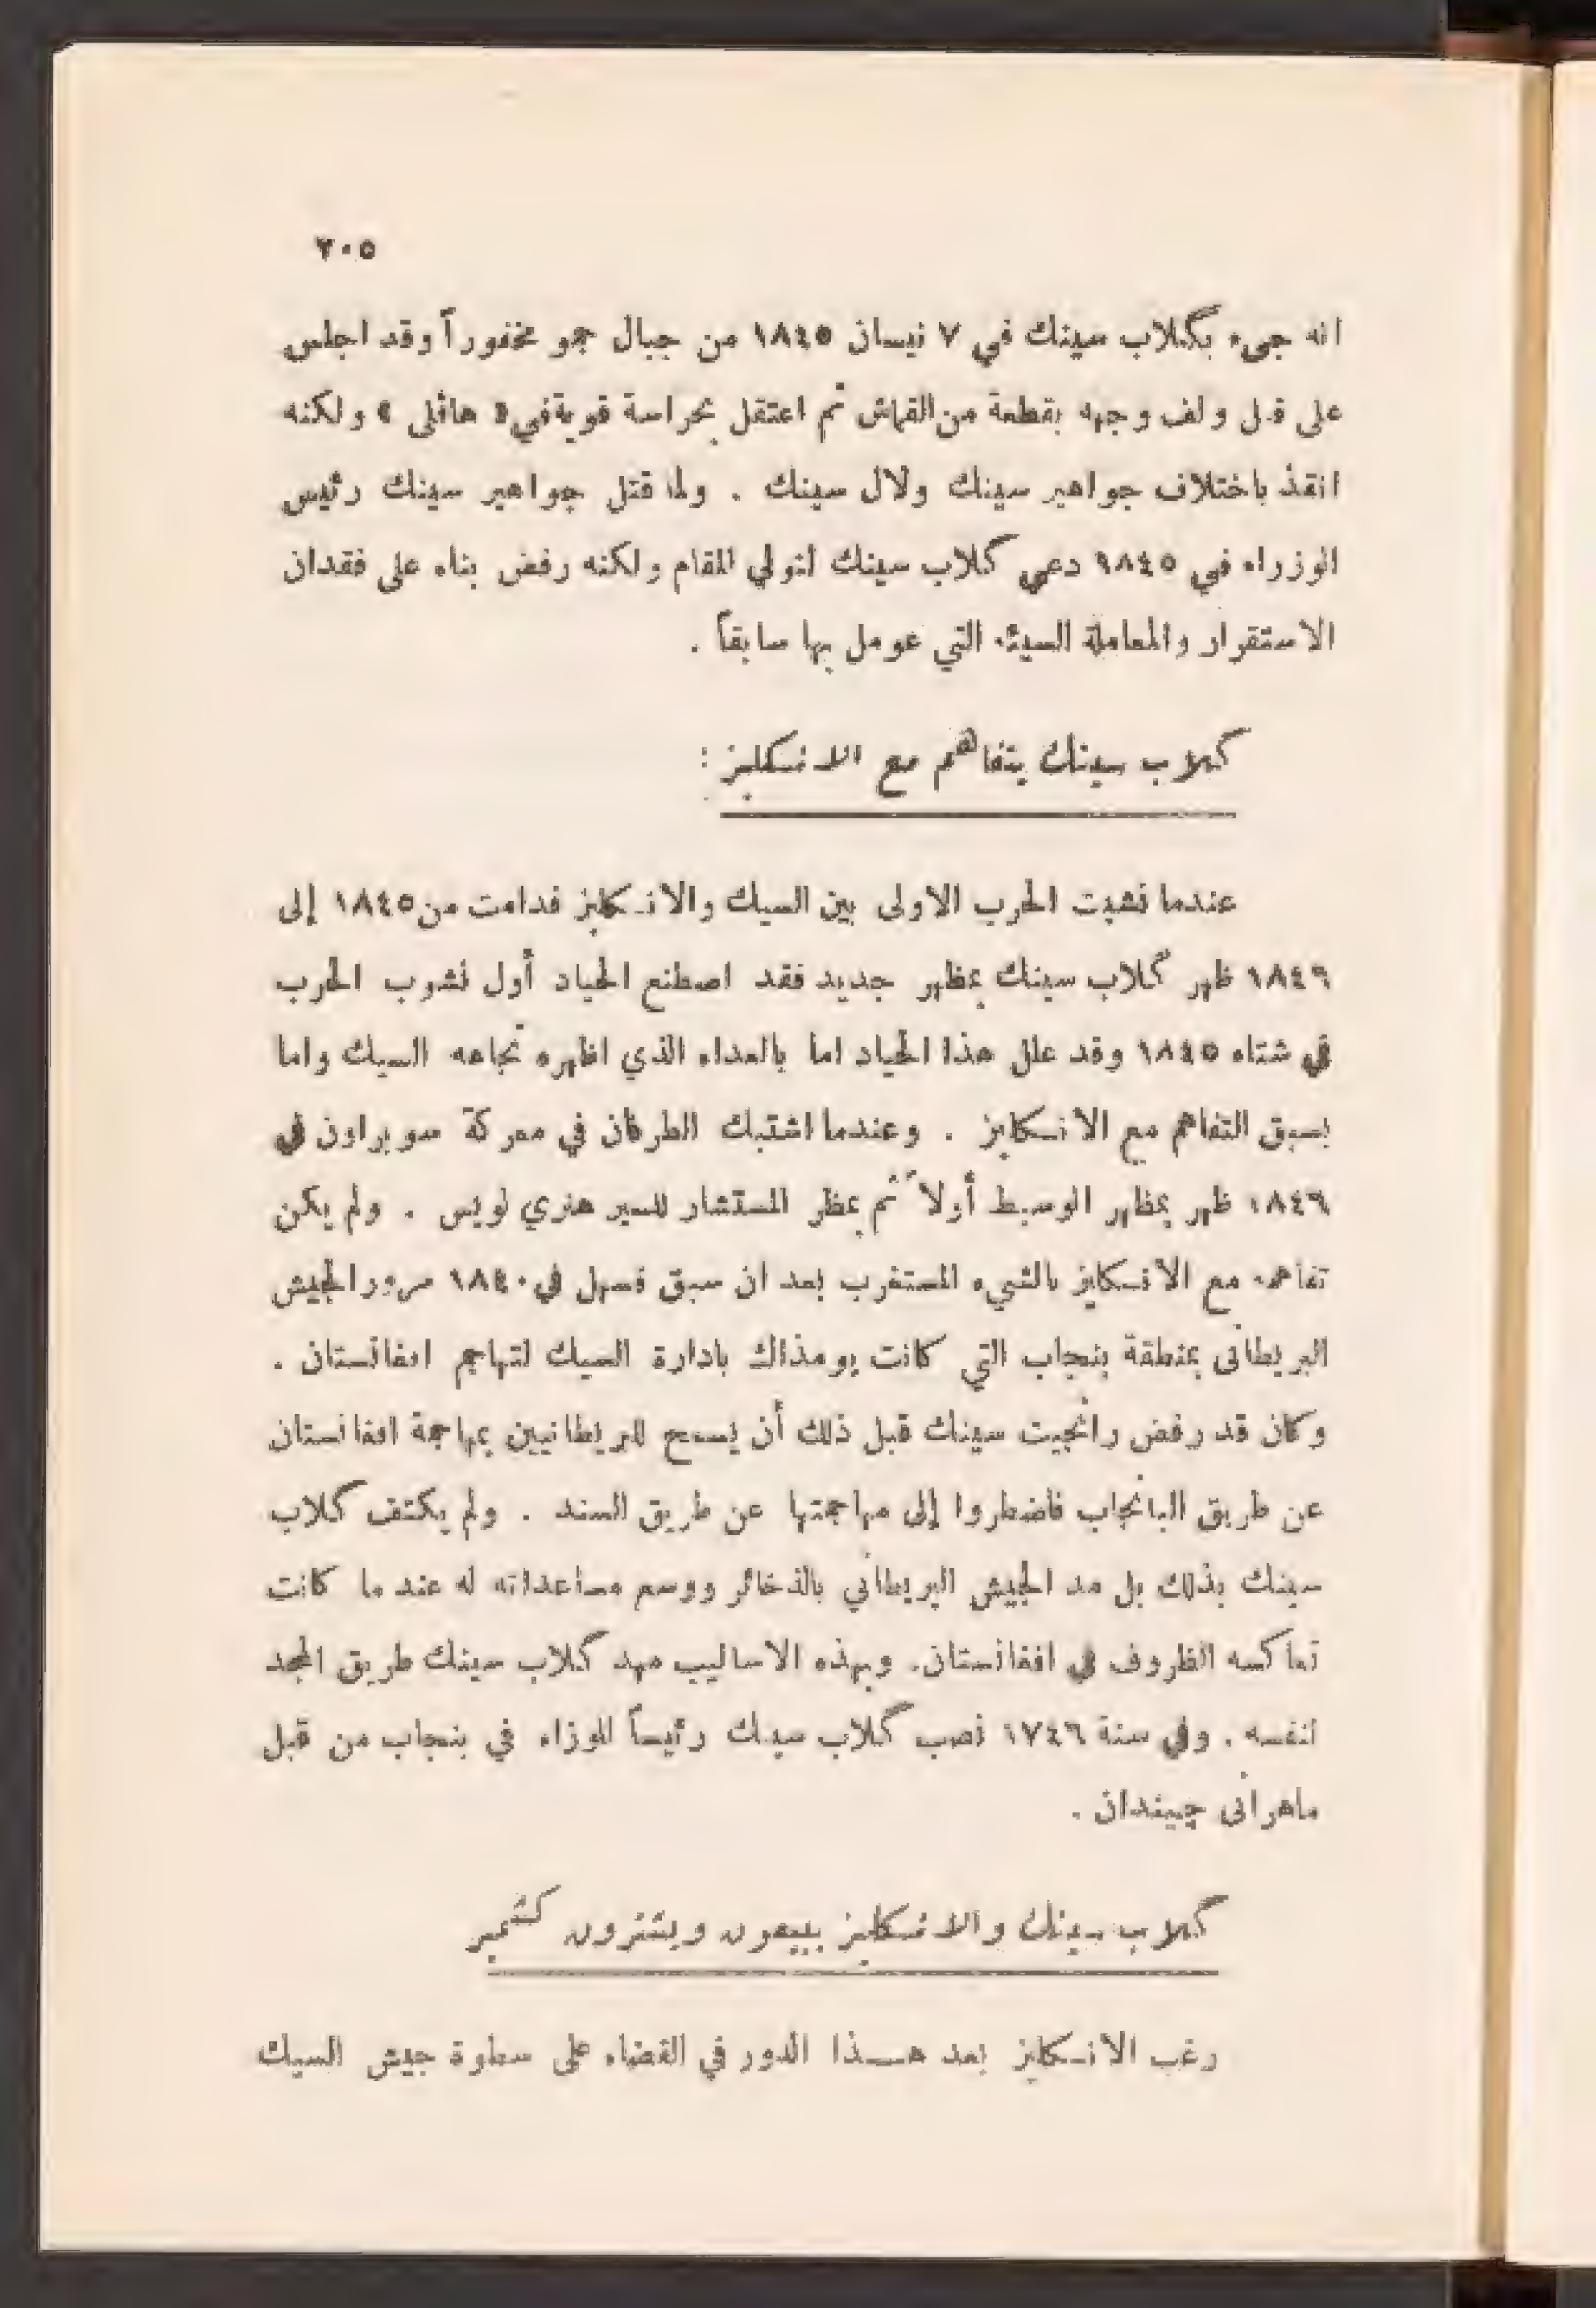 ٢٠٥
انه جيء بكلاب سينك في ٧ نيسان ١٨٤٥ من جبال جمو مخفوراً وقد اجلس
على فيل ولف وجهه بقطعة من القماش ثم اعتقل بحراسة قوية في « هاڤلى » ولكنه
انقذ باختلاف جواهير سينك ولال سينك . ولما قتل جواهير سينك رئيس
الوزراء في ١٨٤٥ دعي كلاب سينك لتولي المقام ولكنه رفض بناء على فقدان
الاستقرار والمعاملة السيئة التي عومل بها سابقاً .
كلاب سينك يتفاهم مع الانكليز :
عندما نشبت الحرب الاولى بين السيك والانكليز فدامت من ١٨٤٥ إلى
١٨٤٩ ظهر كلاب سينك بمظهر جديد فقد اصطنع الحياد أول نشوب الحرب
في شتاء ١٨٤٥ وقد علل هذا الحياد اما بالعداء الذي اظهره تجاهه السيك واما
بسبق التفاهم مع الانكليز . وعندما اشتبك الطرفان في معركة سوبراون في
١٨٤٦ ظهر بمظهر الوسيط أولاً ثم بمظر المستشار للسير هنري لويس . ولم يكن
تفاهمه مع الانكليز بالشيء المستغرب بعد ان سبق فسهل في ١٨٤٠ مرور الجيش
البريطانى بمنطقة بنجاب التي كانت يومذاك بادارة السيك لتهاجم افغانستان .
وكان قد رفض رانجيت سينك قبل ذلك أن يسمح للبريطانيين بمهاجمة افغانستان
عن طريق البانجاب فاضطروا إلى مهاجمتها عن طريق السند . ولم يكتف كلاب
سينك بذلك بل مد الجيش البريطاني بالذخائر ووسع مساعداته له عند ما كانت
تعاكسه الظروف في افغانستان. وبهذه الاساليب مهد كلاب سينك طريق المجد
لنفسه . وفي سنة ١٧٤٦ نصب كلاب سينك رئيساً للوزاء في بنجاب من قبل
ماهرانى چيندان .
كلاب سينك والانكليز يبيعون ويشترون كشمير
رغب الانكليز بعد هذا الدور في القضاء على سطوة جيش السيك